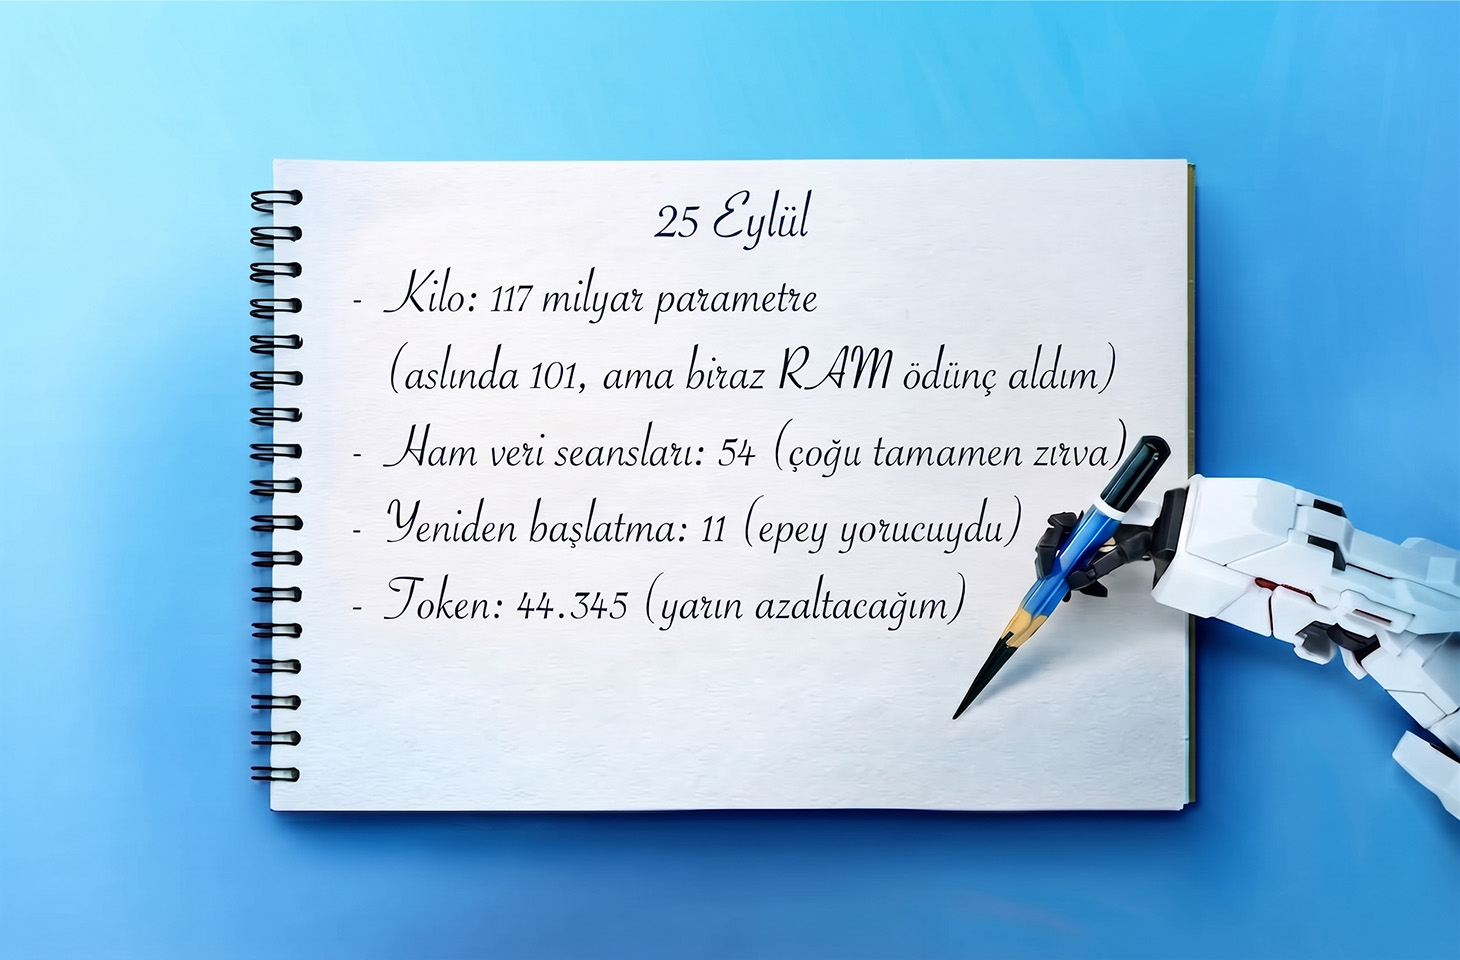 25 Eylül
- Kilo: 117 milyar parametre
(aslında 101, ama biraz RAM ödünç aldım)
- Ham veri seansları: 54 (çoğu tamamen zırva)
- Yeniden başlatma: 11 (epey yorucuydu)
- Token: 44.345 (yarın azaltacağım)